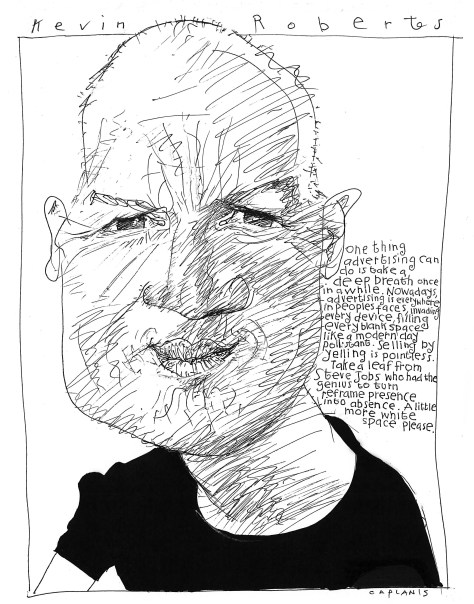 Kevin Robertes
One thing
advertising can
do is take a
deep breath once
in a while. Nowadays
advertising is everywhere
in peoples faces, invading
every device, filling
every blank space
like a modern day
pollutant. Selling by
yelling is pointless.
Take a leaf from
Steve Jobs who had the
genius to turn
reframe presence
into absence. A little
more white
space please.
CAPLANIS